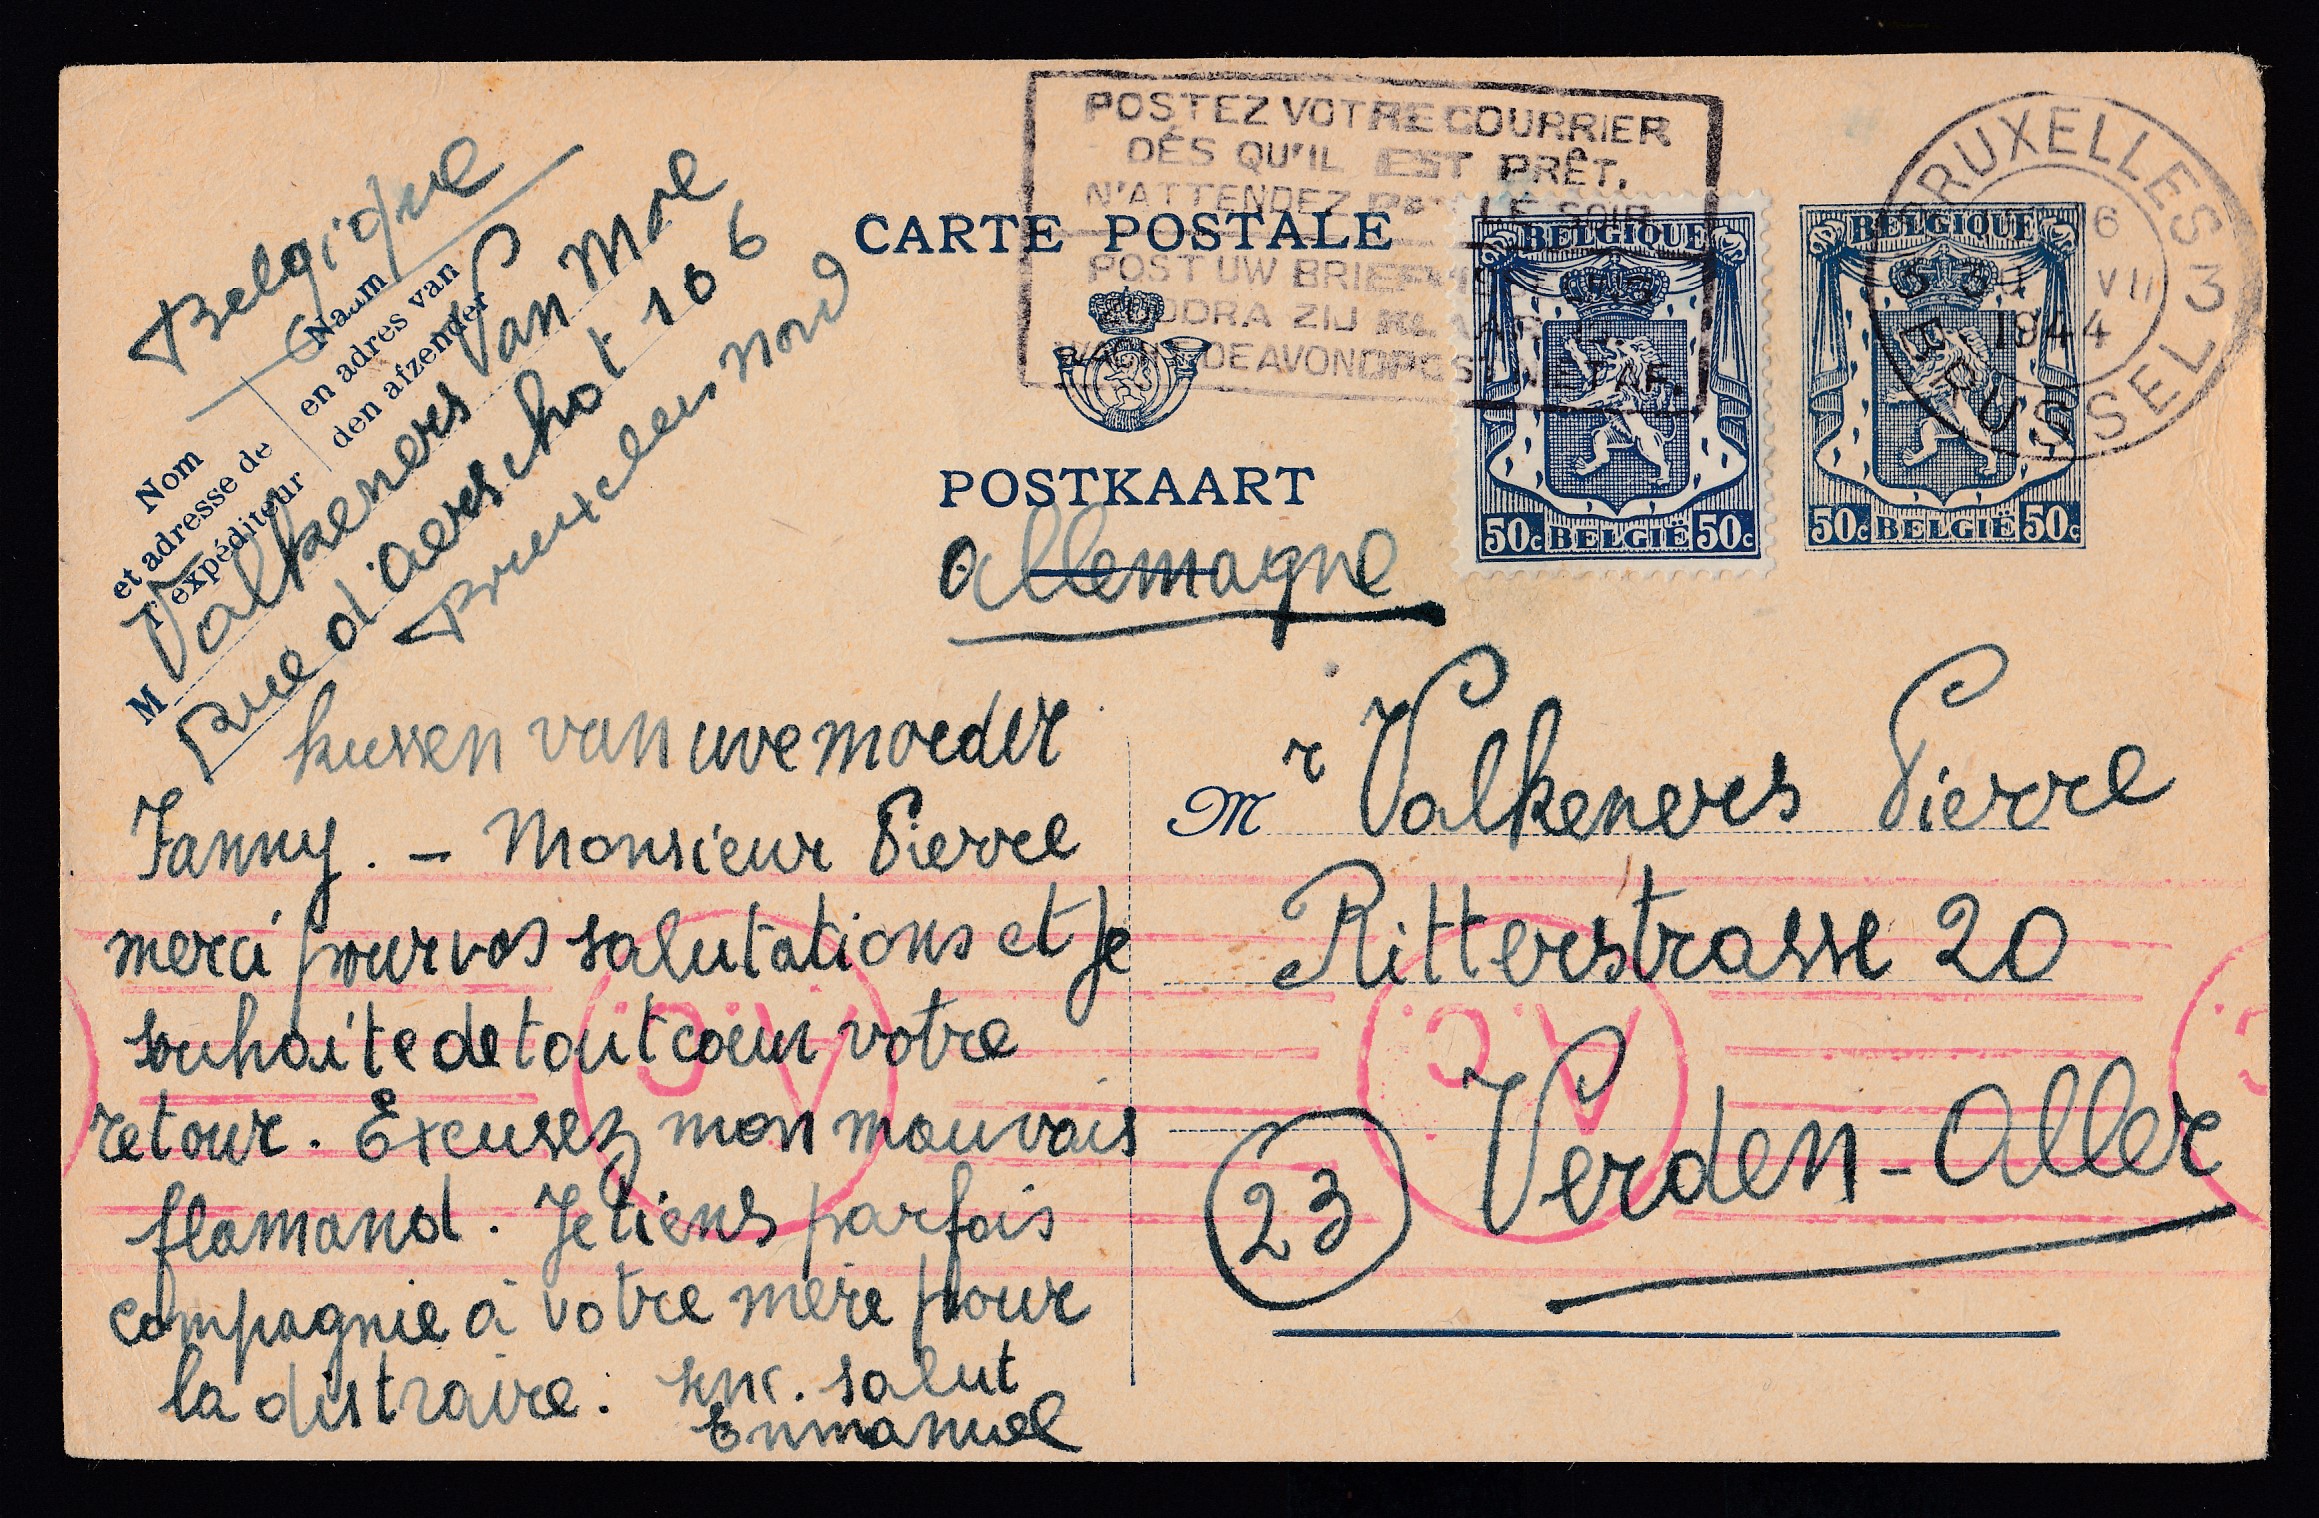 Belgique
Nom et adresse de l'expéditeur
Naam en adres van den afzender
M Valkeners Van Moe
Rue d'aerschot 106
Bruxelles nord
POSTEZ VOTRE COURRIER
DÉS QU'IL EST PRÊT.
N'ATTENDEZ PAS LE SOIR
POST UW BRIEFWIS
ZOODRA ZIJ KLAAR IS
WACHT DE AVONDPOST NIET AF.
CARTE POSTALE
POSTKAART
BELGIQUE
50c BELGIË 50c
BELGIQUE
50c BELGIË 50c
BRUXELLES 3
6
VII
1944
BRUSSEL 3
allemagne
kussen van uwe moeder
Fanny. - Monsieur Pierre
merci pour vos salutations et je
souhaite de tout cœur votre
retour. Excusez mon mauvais
flamand. Je tiens parfois
compagnie à votre mère pour
la distraire. sinc. salut
Emmanuel
Mr Valkeners Pierre
Ritterstrasse 20
23 Verden-Aller
AC
AC